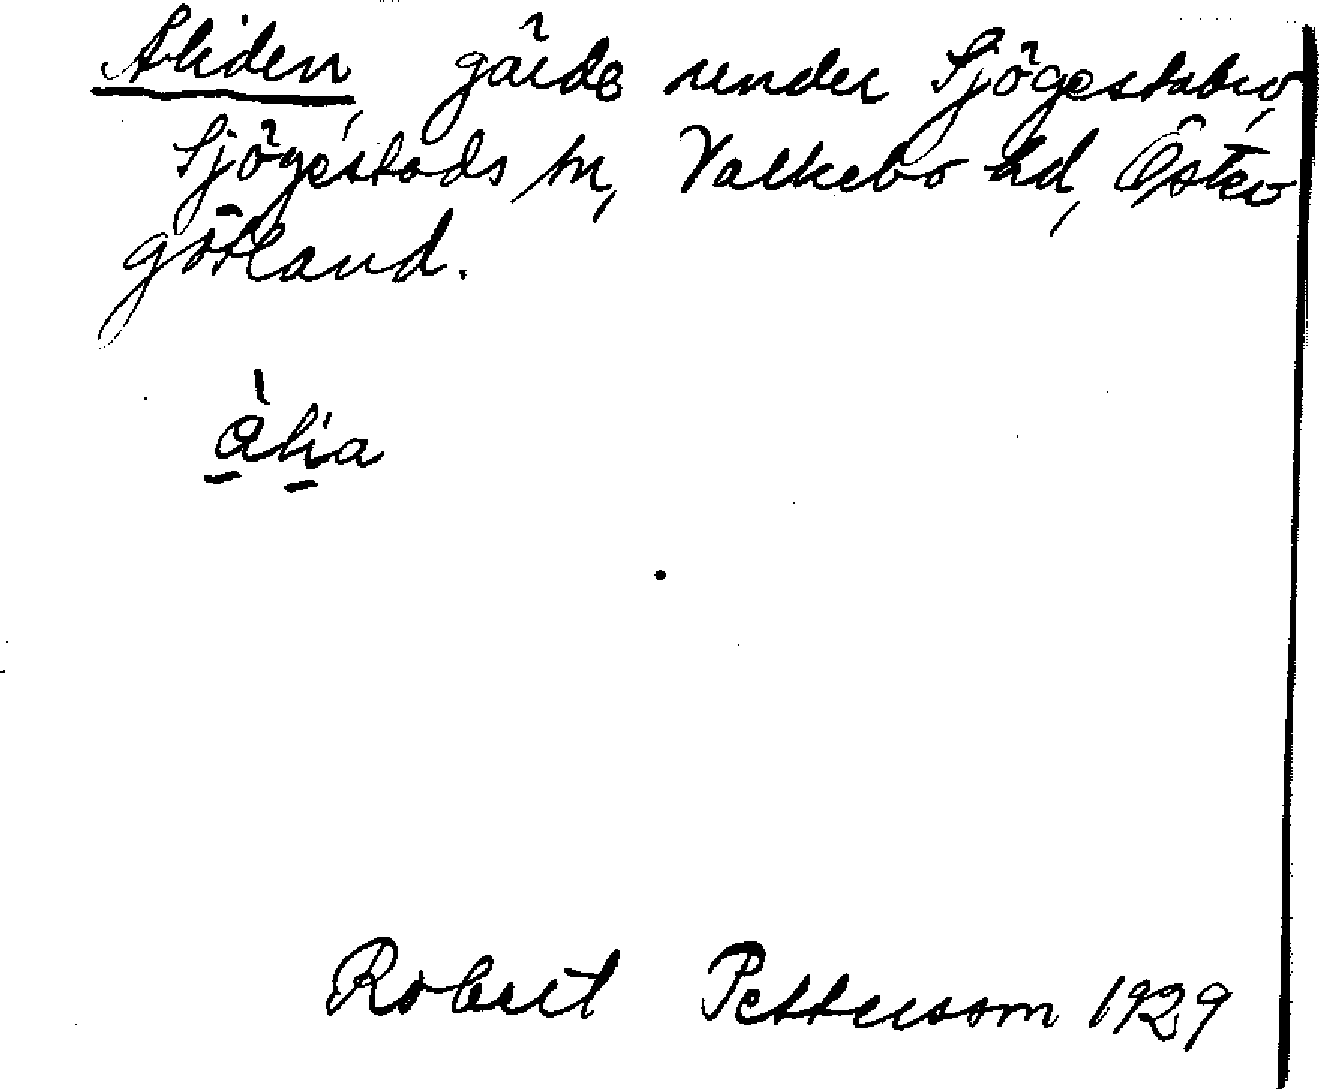 Aliden, gärde under Sjögestabro,
Sjögestads sn, Valkebo hd, Öster
götland.
àlia
Robert Pettersson 1929